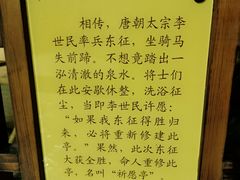 相传，唐朝太宗李
世民率兵东征，坐骑马
失前蹄。不想竟踏出一
泓清澈的泉水。将士们
在此安歇休整，洗浴征
尘，当即李世民许愿：
“如果我东征得胜归
来，必将重新修建此
亭。”果然，此次东征
大获全胜，命人重修此
亭，名曰“祈愿亭”。